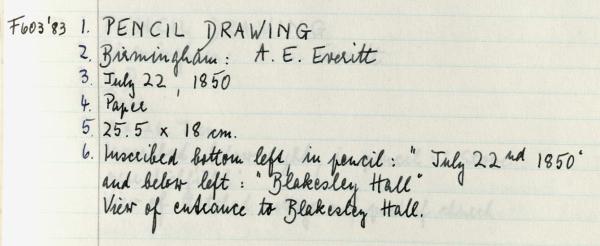 F603'83 1. PENCIL DRAWING
2. Birmingham: A. E. Everitt
3. July 22, 1850
4. Paper
5. 25.5 x 18 cm.
6. Inscribed bottom left, in pencil: "July 22nd 1850"
and below left: "Blakesley Hall"
View of entrance to Blakesley Hall.